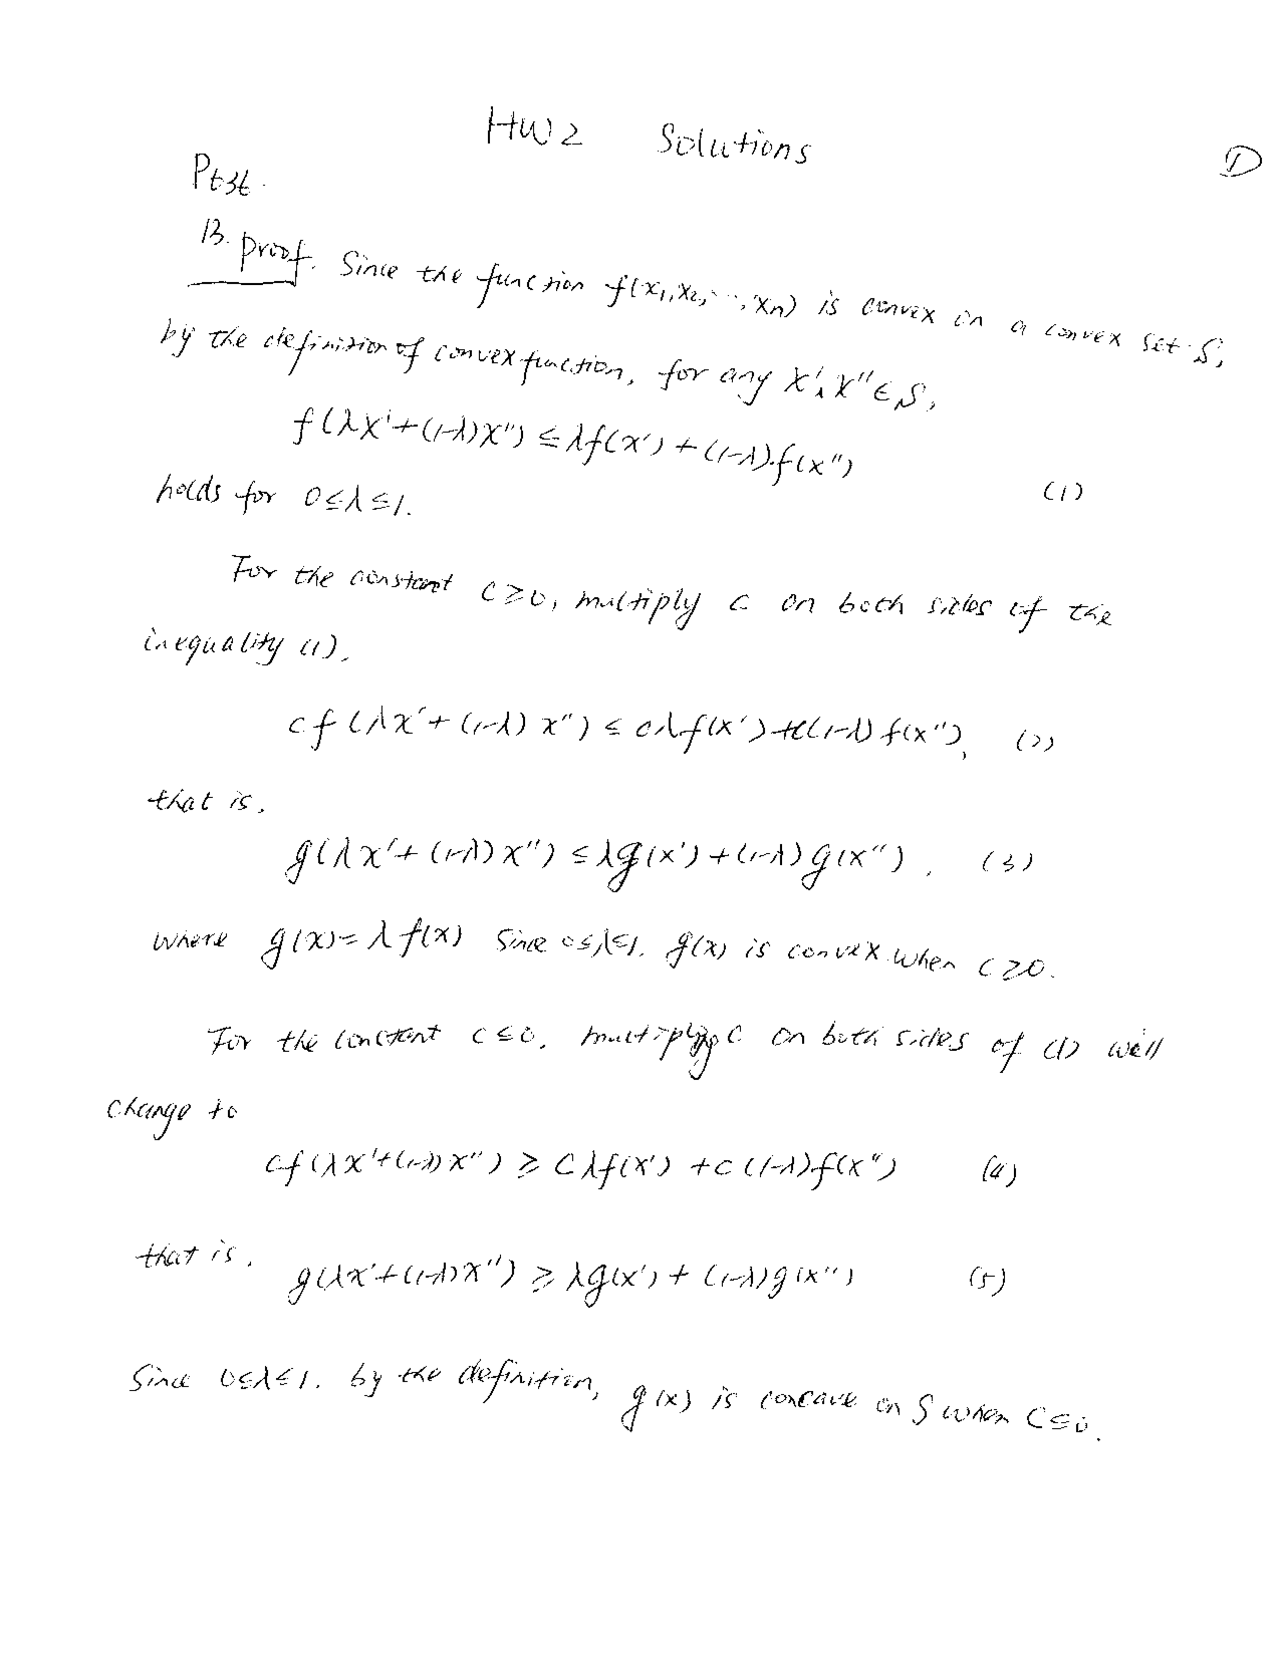 HW2 Solutions
①
13. proof. Since the function f(x₁,x₂,...,xₙ) is convex on a convex set S,
by the definition of convex function, for any x', x'' ∈ S,
f(λx'+(1-λ)x'') ≤ λf(x') + (1-λ).f(x'')
(1)
holds for 0≤λ≤1.
For the constant c≥0, multiply c on both sides of the
inequality (1),
cf(λx'+(1-λ)x'') ≤ cλf(x')+c(1-λ)f(x''), (2)
that is,
g(λx'+(1-λ)x'') ≤ λg(x')+(1-λ)g(x''). (3)
where g(x)=λf(x) Since 0≤λ≤1. g(x) is convex when c≥0.
For the constant c≤0, multiplying c on both sides of (1) will
change to
cf(λx'+(1-λ)x'') ≥ cλf(x') +c(1-λ)f(x'') (4)
that is, g(λx'+(1-λ)x'') ≥ λg(x') + (1-λ)g(x'') (5)
Since 0≤λ≤1. by the definition, g(x) is concave on S when c≤0.